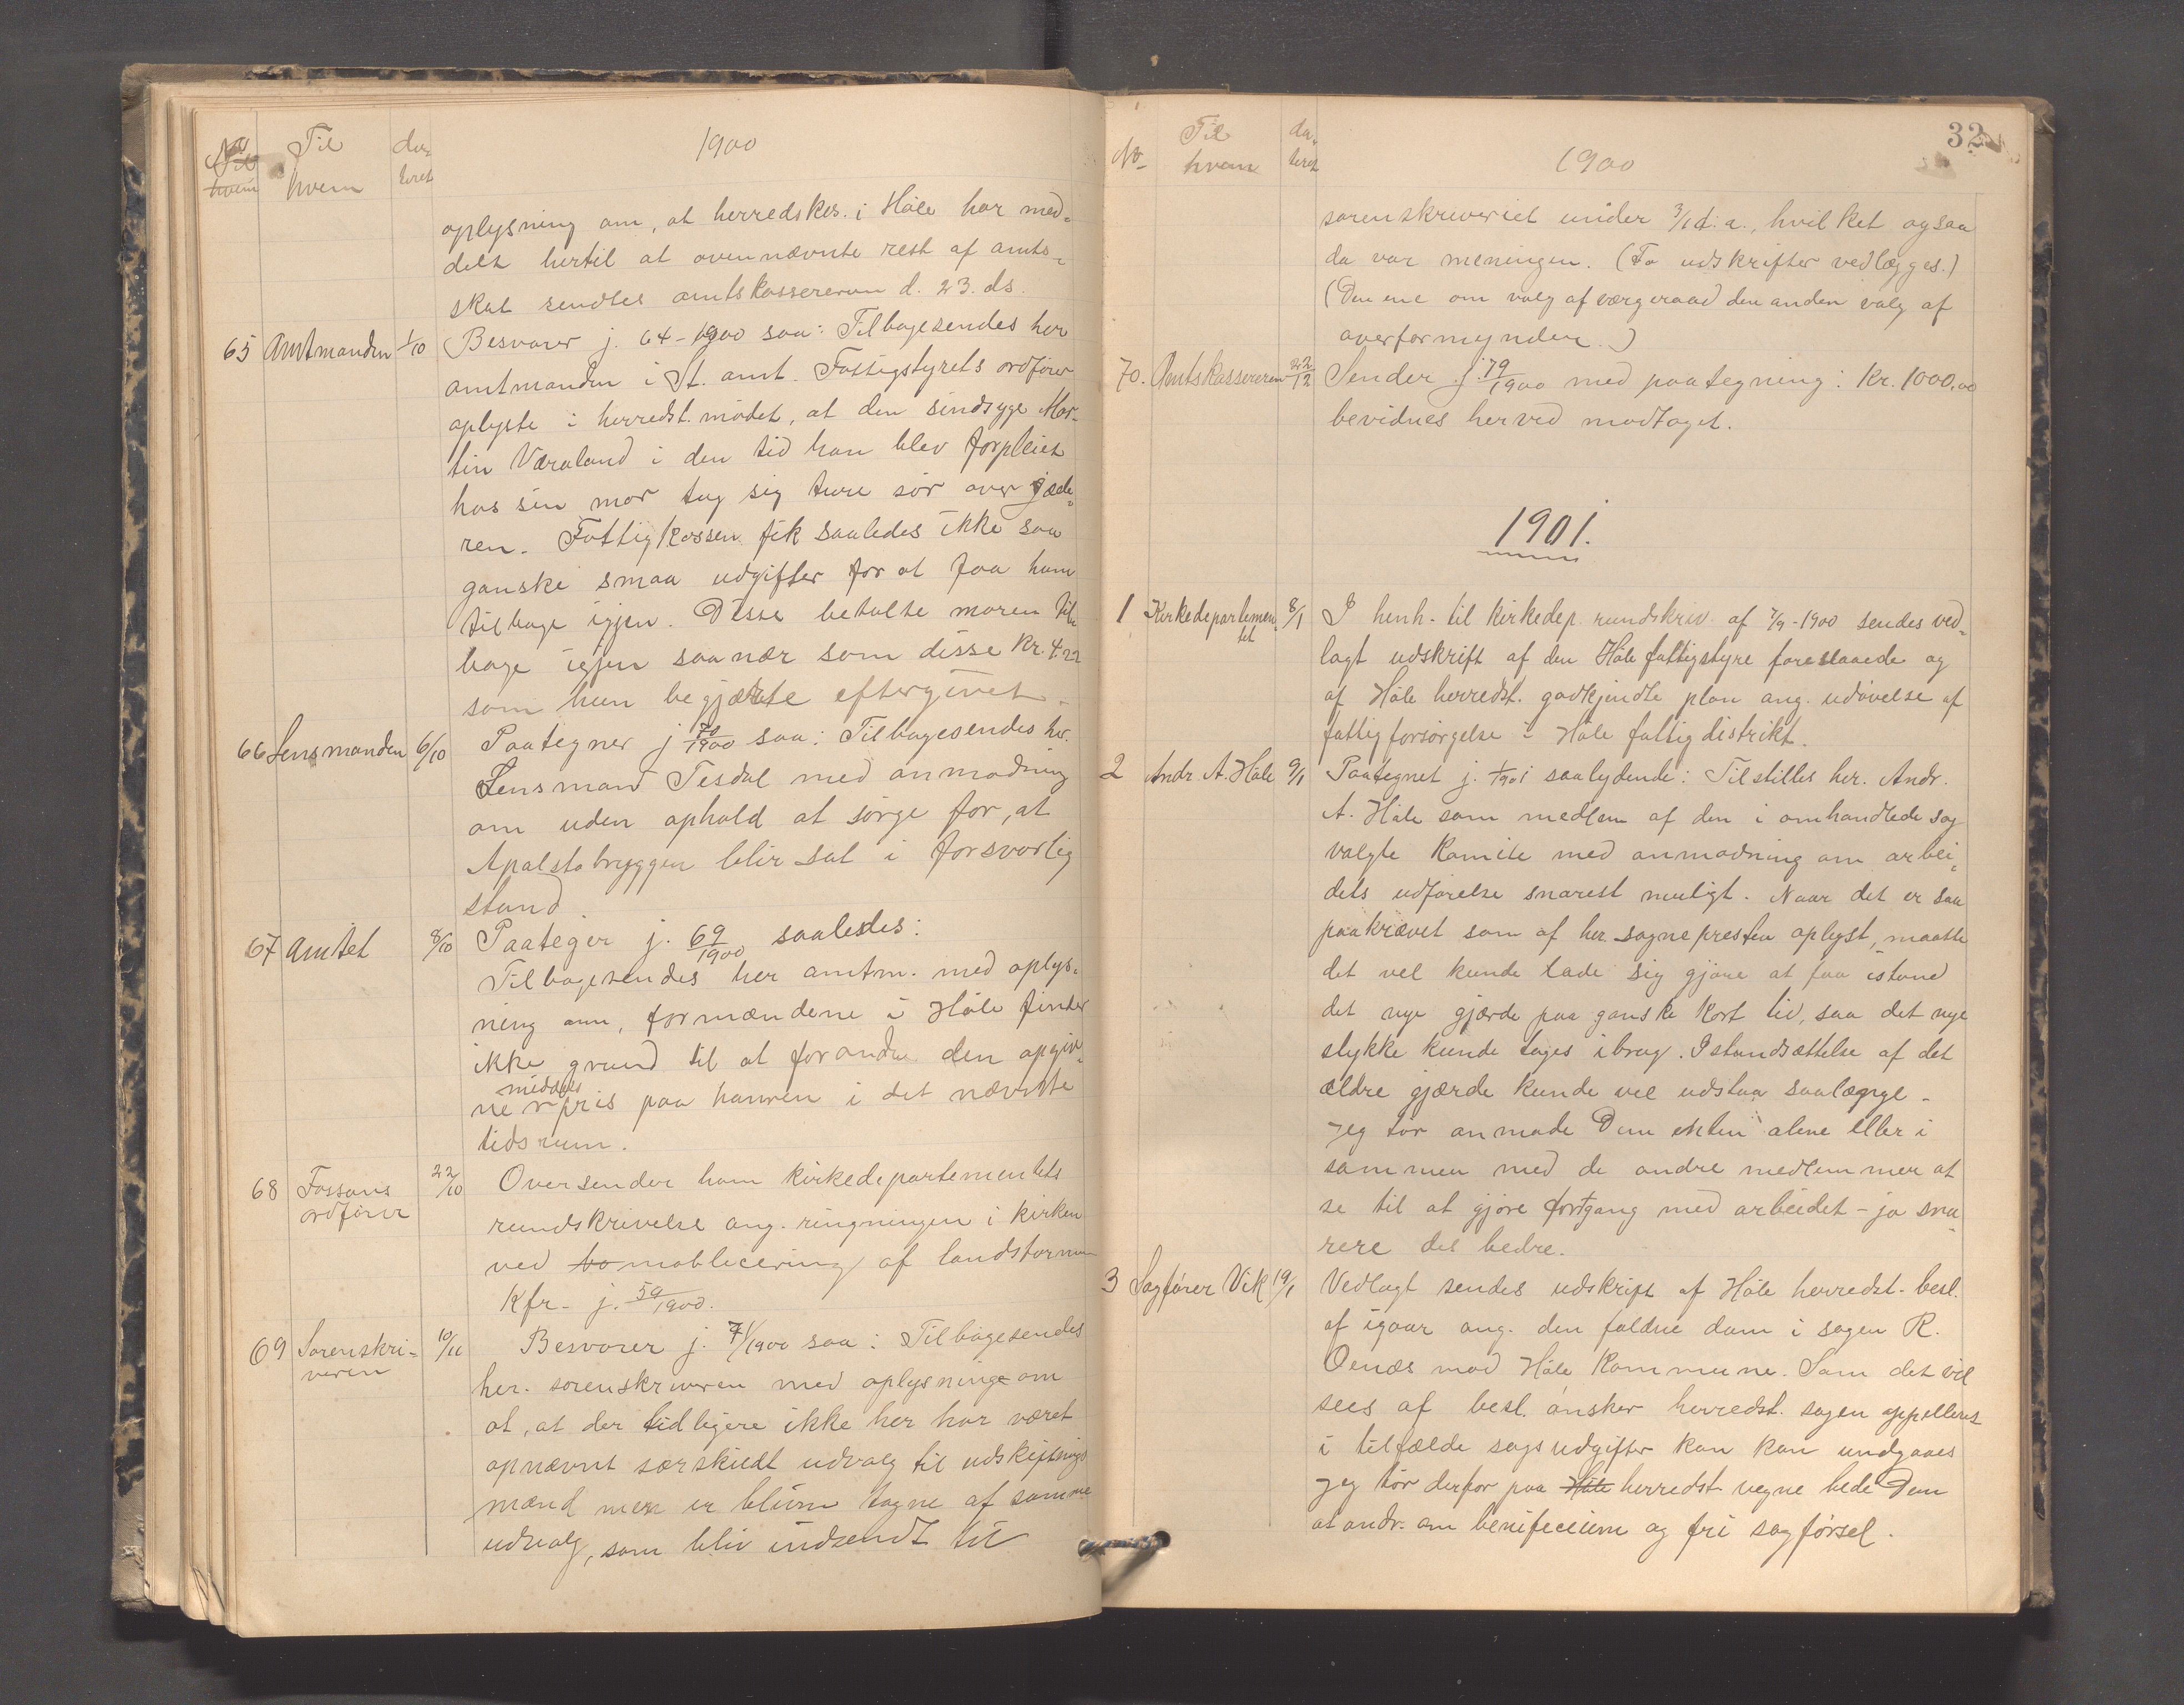 No Til hvem da-teret 1900
oplysning om, at herredskas. i Høle har med-
delt hertil at ovennævnte rest af amts-
skat sendtes amtskassereren d. 23. ds.
65 Amtmanden 1/10 Besvarer j. 64-1900 saa: Tilbagesendes her
amtmanden i St. amt. Fattigstyrets ordfører
oplyste i herredst. mødet, at den sindsyge Mar-
tin Væraland i den tid han blev forpleiet
hos sin mor tog sig ture sør over Jæde-
ren. Fattigkassen fik saaledes ikke saa
ganske smaa udgifter for at faa ham
tilbage igjen. Disse betalte moren til-
bage igjen saa nær som disse Kr. 4.22
som hun begjærte eftergivet.
66 Lensmanden 6/10 Paategner j 70/1900 saa: Tilbagesendes hr.
Lensmand Tesdal med anmodning
om uden ophold at sørge for, at
Apalstøbryggen blir sat i forsvarlig
stand.
67 Amtet 8/10 Paateger j. 69/1900 saaledes:
Tilbagesendes her amtm. med oplys-
ning om, formændene i Høle finder
ikke grund til at forandre den opgiv-
ne middels pris paa havren i det nævnte
tidsrum.
68 Fossans ordfører 22/10 Oversender ham kirkedepartementets
rundskrivelse ang. ringningen i kirken
ved mobilicering af landstormen
Kfr. j. 59/1900.
69 Sorenskri-veren 10/11 Besvarer j. 71/1900 saa: Tilbagesendes
her. sorenskriveren med oplysninge om
at, at der tidligere ikke her har været
opnævnt særskildt udvalg til udskiftnings
mænd men er blevne tagne af samme
udvalg, som blir indsendt til
No Til hvem da-teret 1900 32
sorenskriveriet under 3/1 d. a., hvilket ogsaa
da var meningen. (To udskrifter vedlægges.)
(Den ene om valg af værgeraad den anden valg af
overformynder.)
70. Amtskassereren 22/12 Sender j 79/1900 med paategning: Kr. 1000,00
bevidnes herved modtaget.
1901.
1 Kirkedepartemen-tet 8/1 I henh. til Kirkedep. rundskriv. af 7/9-1900 sendes ved-
lagt udskrift af den Høle fattigstyre foreslaaede og
af Høle herredst. godkjendte plan ang. udøvelse af
fattigforsørgelse i Høle fattigdistrikt.
2 Andr. A. Høle 9/1 Paategnet j. 1/1901 saalydende: Tilstilles hr. Andr.
A. Høle som medlem af den i omhandlede sag
valgte Komite med anmodning om arbei-
dets udførelse snarest muligt. Naar det er saa
paakrævet som af her. sognepresten oplyst, maatte
det vel kunde lade sig gjøre at faa istand
det nye gjærde paa ganske kort tid, saa det nye
stykke kunde tages ibrug. Istandsættelse af det
ældre gjærde kunde vel udstaa saalænge.
Jeg tør anmode Dem enten alene eller i
sammen med de andre medlemmer at
se til at gjøre fortgang med arbeidet – jo sna-
rere det bedre.
3 Sagfører Vik 19/1 Vedlagt sendes udskrift af Høle herredst. besl.
af igaar ang. den faldne dom i sagen R.
Oenæs mod Høle Kommune. Som det vil
sees af besl. ønsker herredst. sagen appelleret
i tilfælde sagsudgifter kan kan undgaaes
Jeg tør derfor paa Høle herredst vegne bede Dem
at andr. om benificium og fri sagførsel.